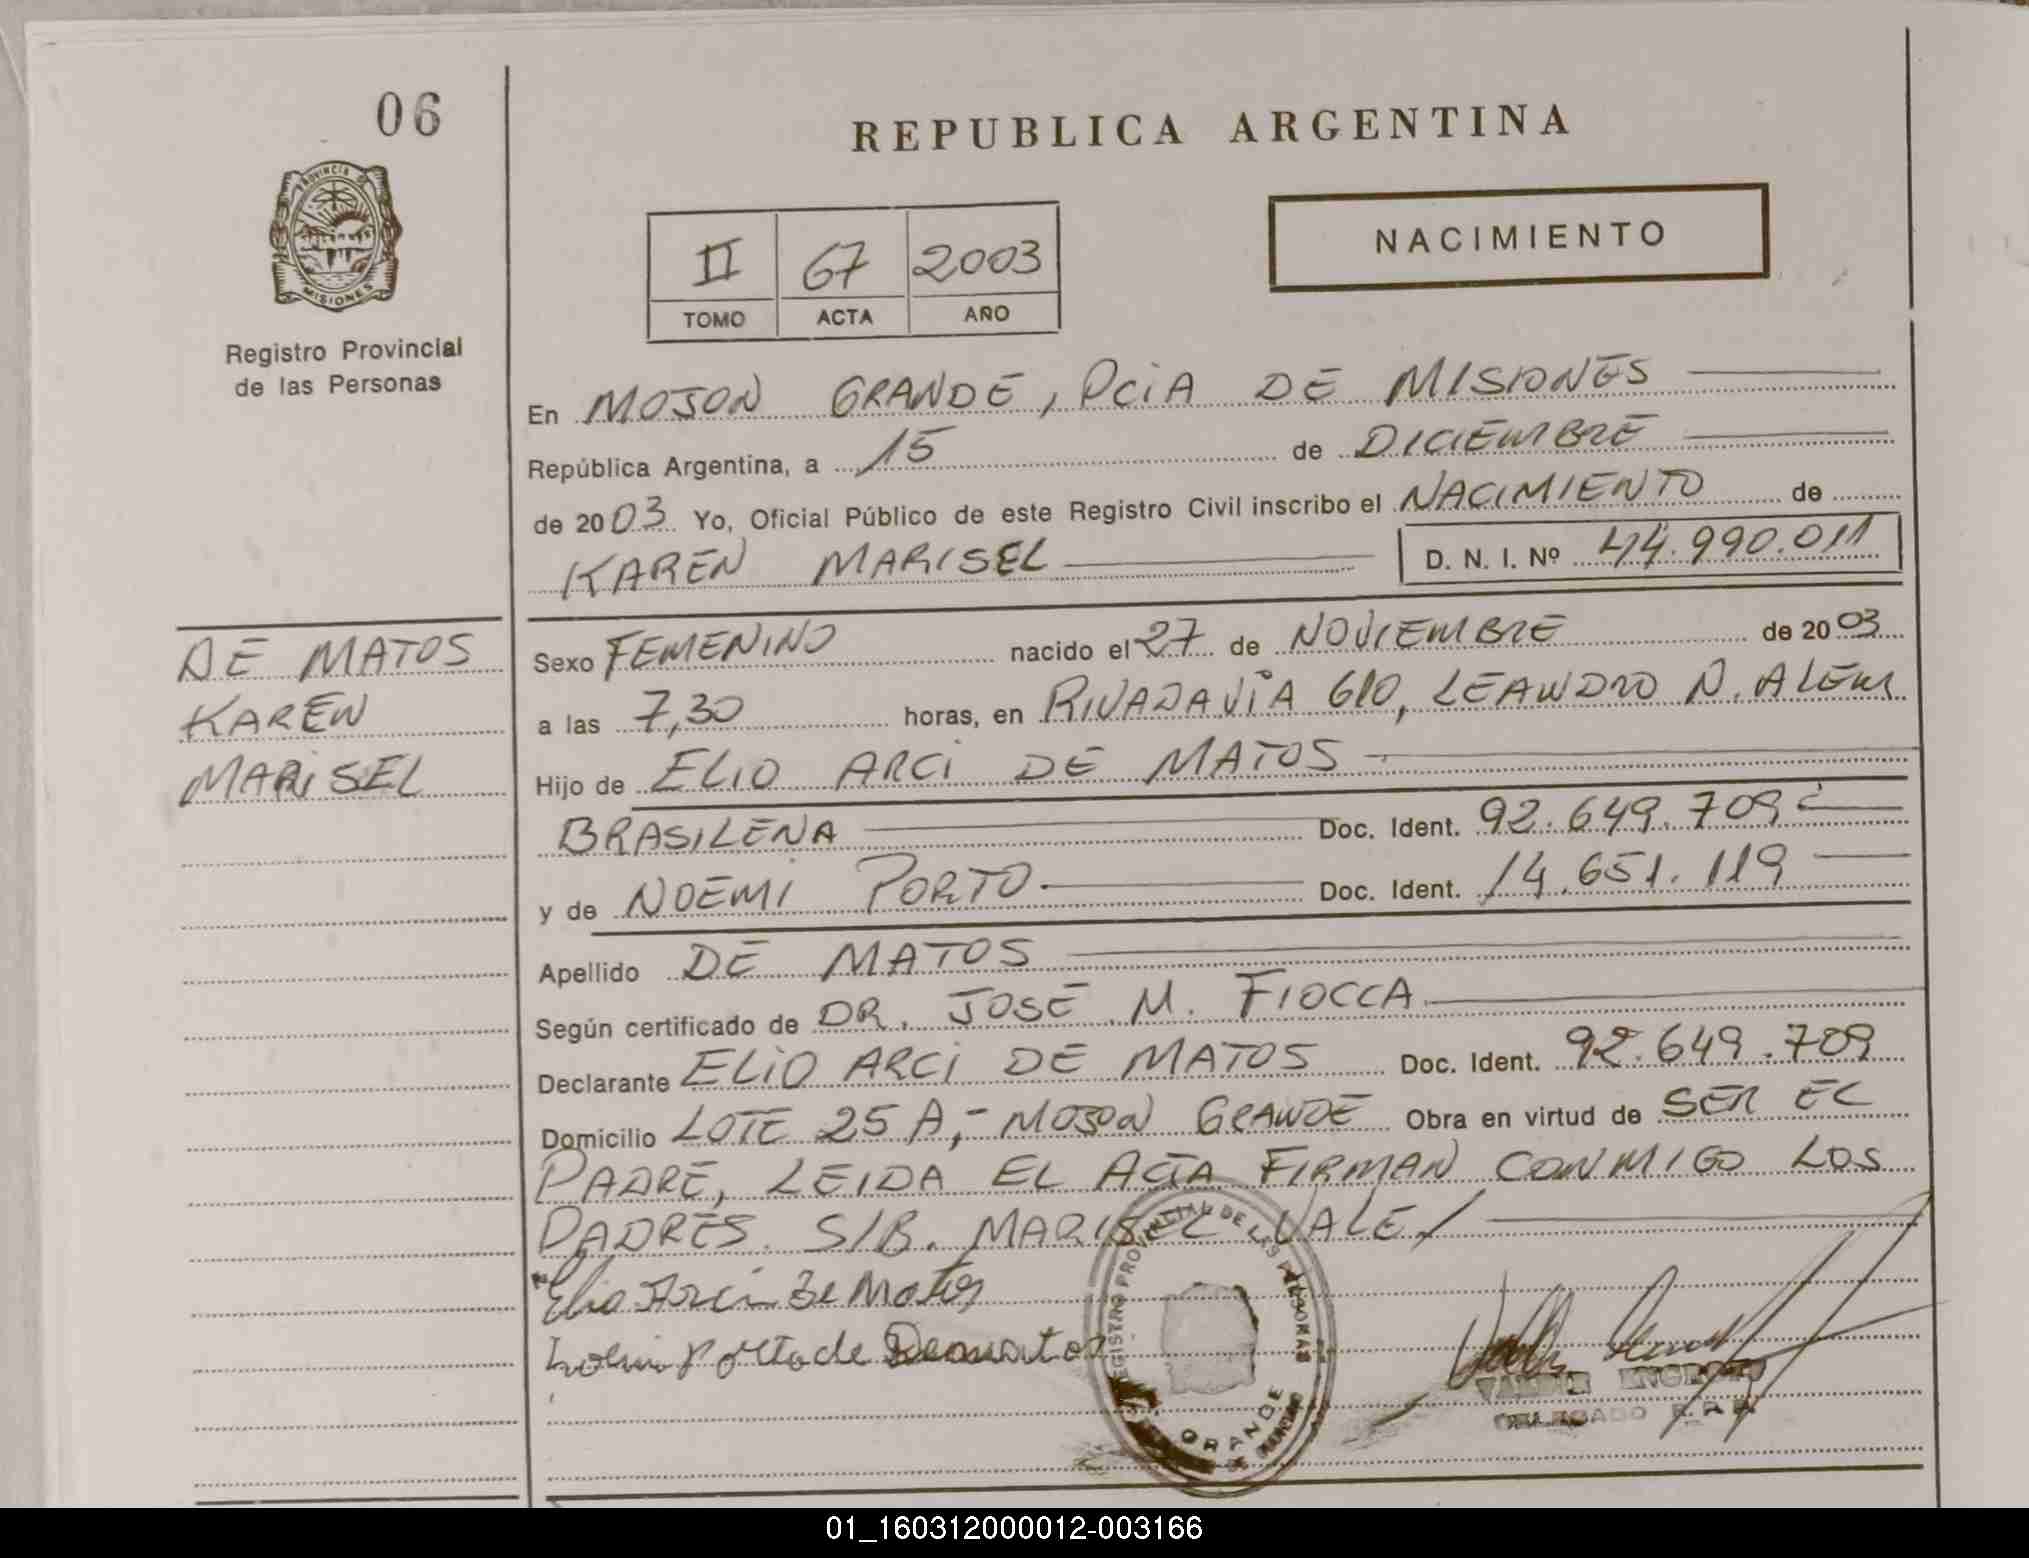 06
REPUBLICA ARGENTINA
PROVINCIA DE
MISIONES
Registro Provincial
de las Personas
NACIMIENTO
II 67 2003
TOMO ACTA AÑO
En MOJON GRANDE, PCIA DE MISIONES
República Argentina, a 15 de DICIEMBRE
de 2003 Yo, Oficial Público de este Registro Civil inscribo el NACIMIENTO de
KAREN MARISEL D. N. I. Nº 44.990.011
DE MATOS
KAREN
MARISEL
Sexo FEMENINO nacido el 27 de NOVIEMBRE de 2003
a las 7,30 horas, en RIVADAVIA 610, LEANDRO N. ALEM
Hijo de ELIO ARCI DE MATOS
BRASILENA Doc. Ident. 92.649.709
y de NOEMI PORTO Doc. Ident. 14.651.119
Apellido DE MATOS
Según certificado de DR. JOSE M. FIOCCA
Declarante ELIO ARCI DE MATOS Doc. Ident. 92.649.709
Domicilio LOTE 25 A,- MOJON GRANDE Obra en virtud de SER EL
PADRE, LEIDA EL ACTA FIRMAN CONMIGO LOS
PADRES. S/B. MARISEL VALE/
Elio Arci De Matos
REGISTRO PROVINCIAL DE LAS PERSONAS
GRANDE
DELEGADO R.P.P.
01_160312000012-003166